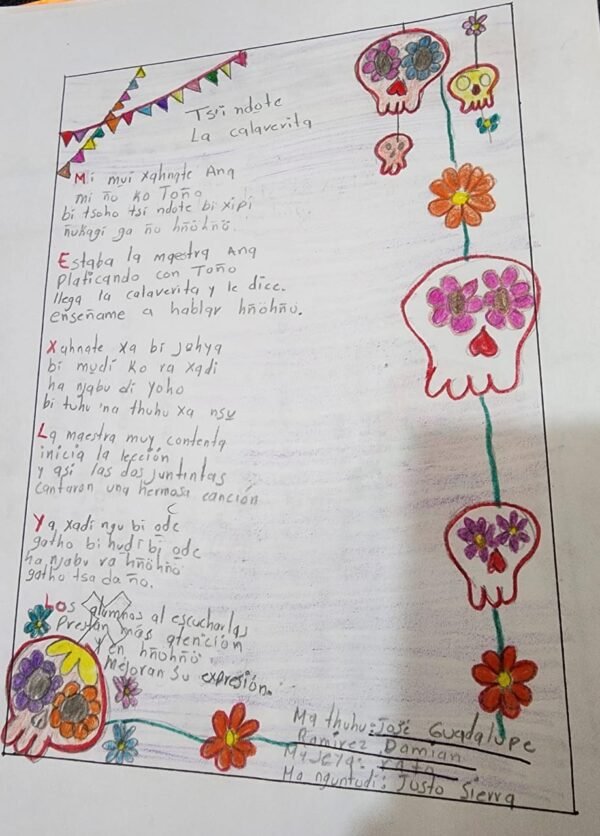 Tsi ndote
La calaverita
Mi mui xahnate Ana
mi ño ko Toño
bi tsoho tsi ndote bi xipi
ñukagi ga ño hñöhñö.
Estaba la maestra Ana
platicando con Toño
llega la calaverita y le dice.
enseñame a hablar hñöhñö.
Xahnate xa bi johya
bi mudi ko ra xadi
ha njabu di yoho
bi tuhu 'na thuhu xa nsu
La maestra muy contenta
inicia la lección
y asi las dos juntintas
cantaron una hermosa canción
Ya xadi ngu bi ode
gatho bi hudi bi ode
ha njabu ra hñöhñö
gatho tsa da ño.
Los alumnos al escucharlas
Prestan más atención
y en hñöhñö
Mejoran su expresión.
Ma thuhu: José Guadalupe
Ramirez Damian
Ma jeya:
Ma nguntudi: Justo Sierra